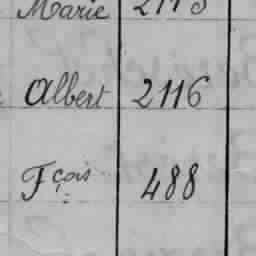 Marie 2115
Albert 2116
Fçois 488